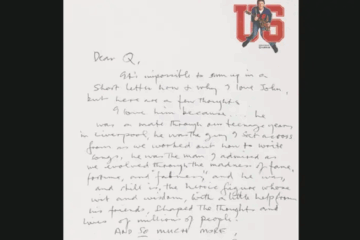 US
Dear Q,
It is impossible to sum up in a
short letter how & why I love John,
but here are a few thoughts.
I love him because... he
was a mate through our teenage years
in Liverpool, he was the guy I sat across
from as we worked out how to write
songs, he was the man I admired as
we evolved through the madness of fame,
fortune, and "fabness" and he was,
and still is, the heroic figure whose
wit and wisdom, with a little help from
his friends, shaped the thoughts and
lives of millions of people!
AND SO MUCH MORE!